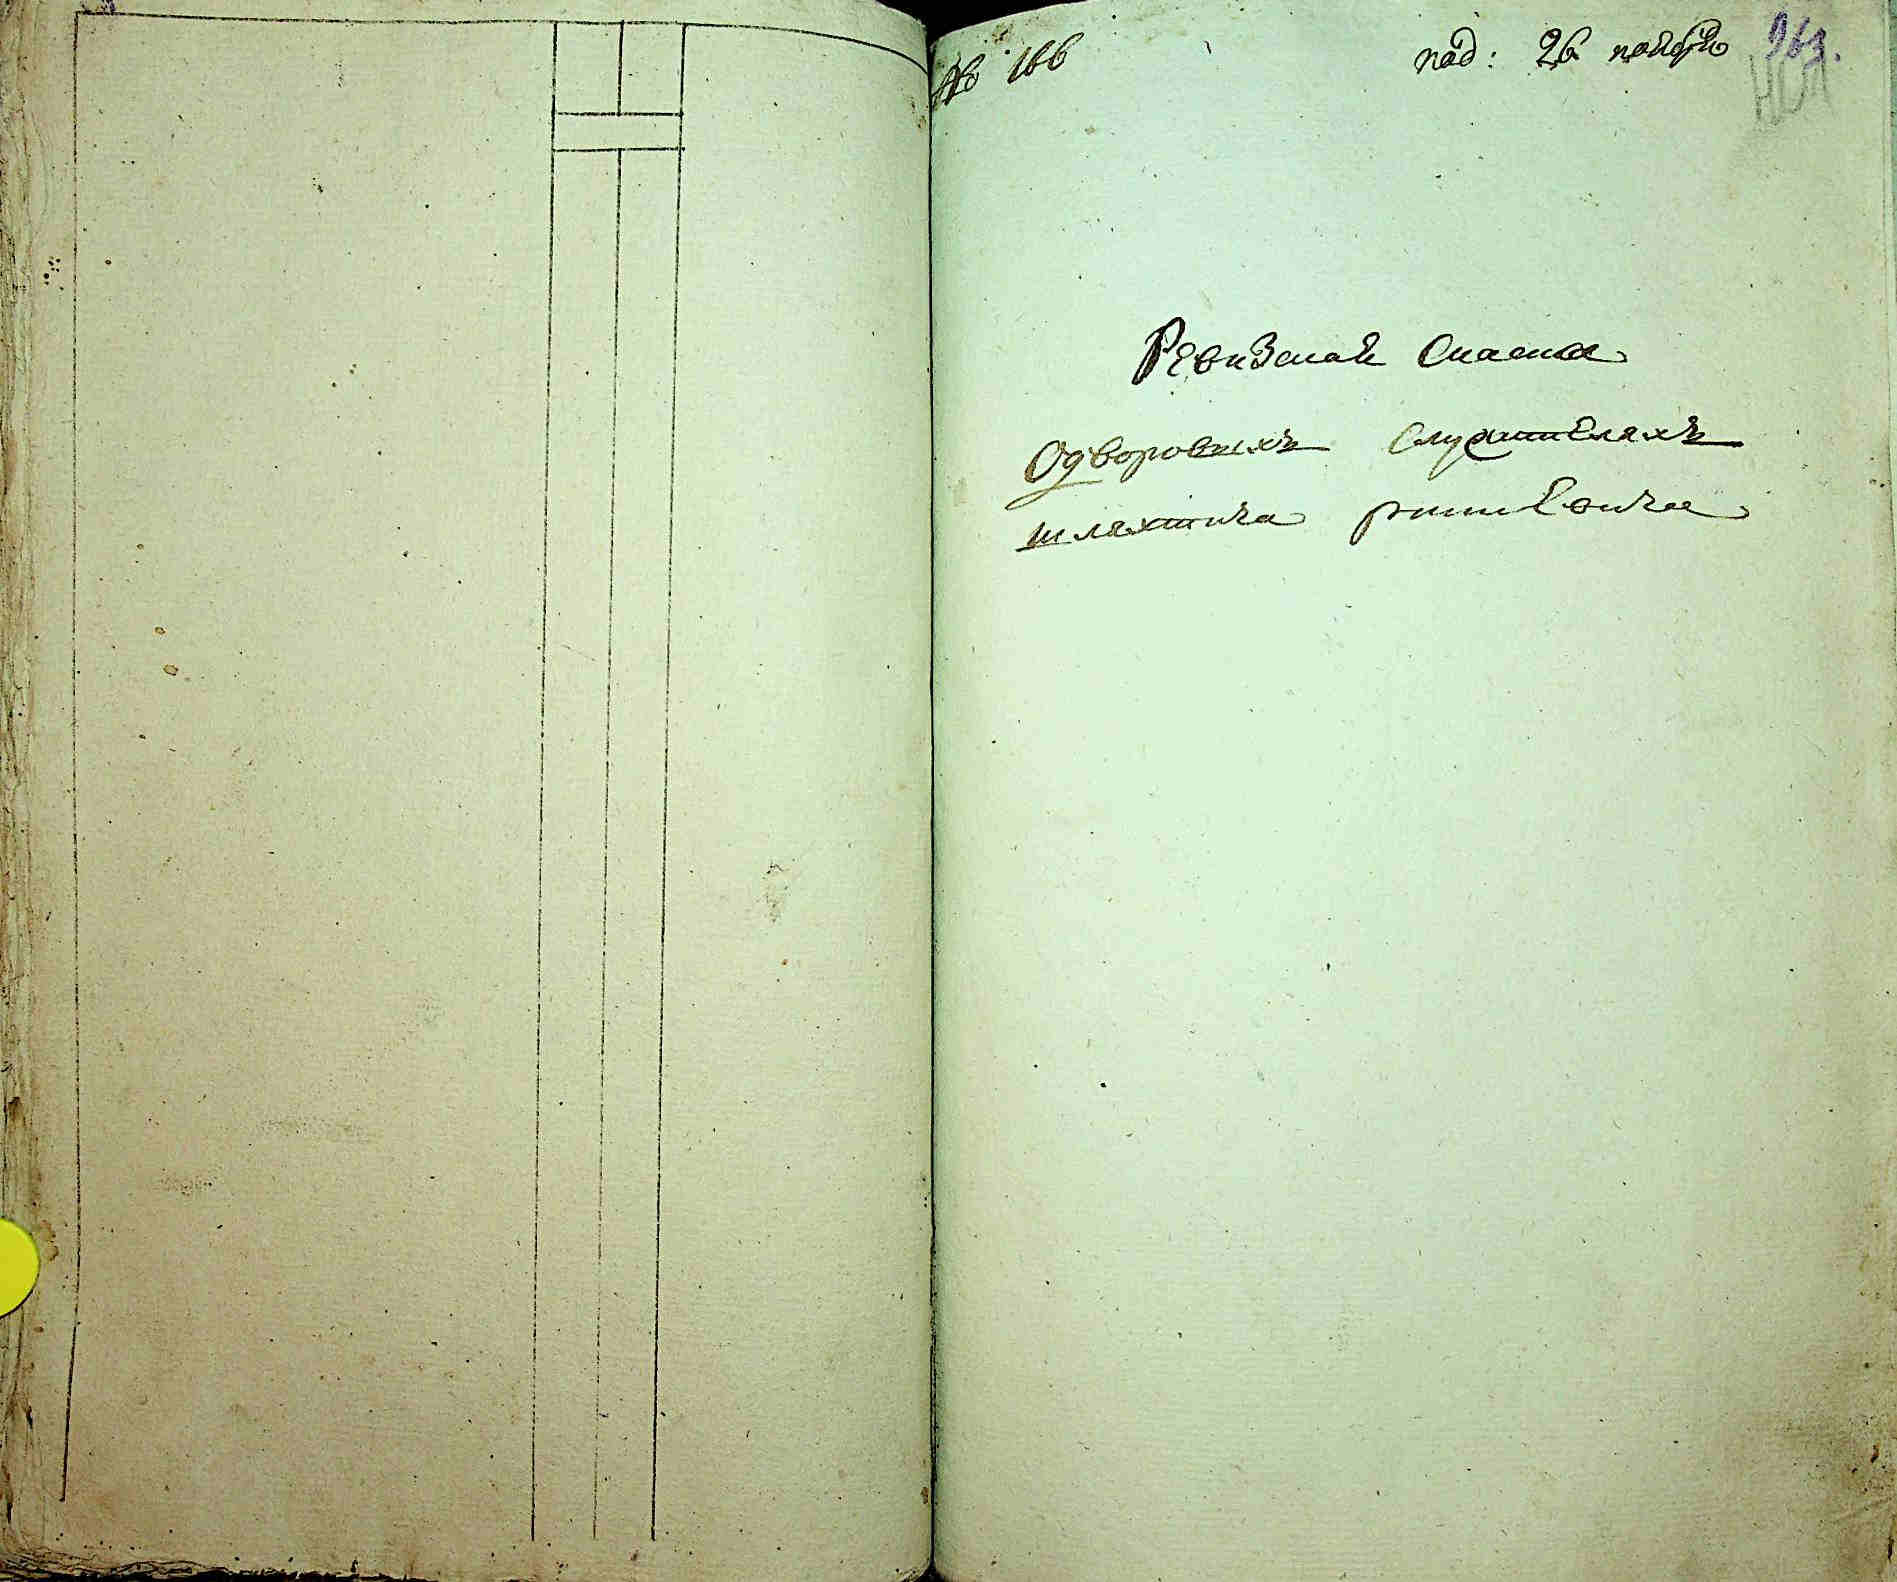 № 166
под: 26 ноября 963.
Ревизская Скаска
Одворовыхъ Служителяхъ
шляхтича